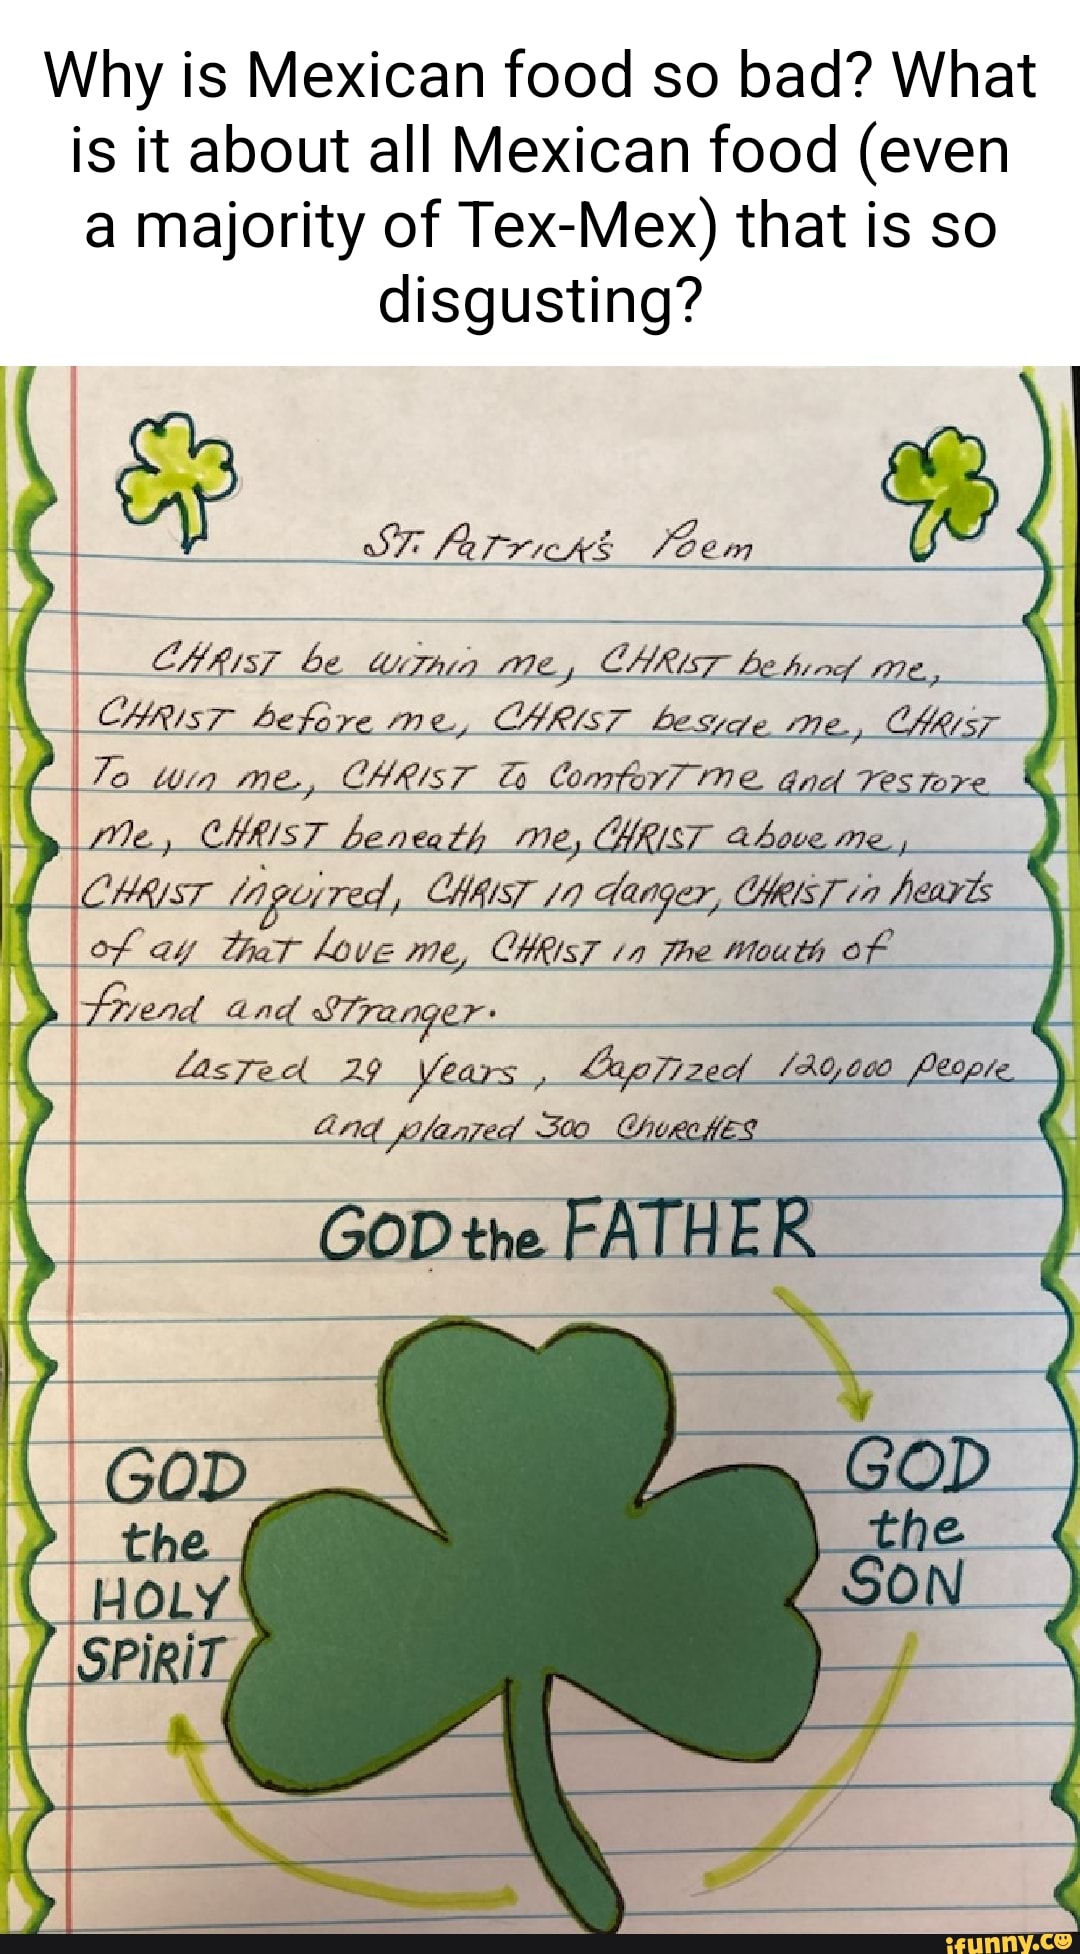 Why is Mexican food so bad? What
is it about all Mexican food (even
a majority of Tex-Mex) that is so
disgusting?
ST. Patrick's Poem
CHRIST be within me, CHRIST behind me,
CHRIST before me, CHRIST beside me, CHRIST
To win me, CHRIST to Comfort me and restore
me, CHRIST beneath me, CHRIST above me,
CHRIST inquired, CHRIST in danger, CHRIST in hearts
of all that Love me, CHRIST in The mouth of
friend and Stranger.
Lasted 29 years, Baptized 120,000 people
and planted 300 CHURCHES
GOD the FATHER
GOD
the
SON
GOD
the
HOLY
SPiRiT
ifunny.co